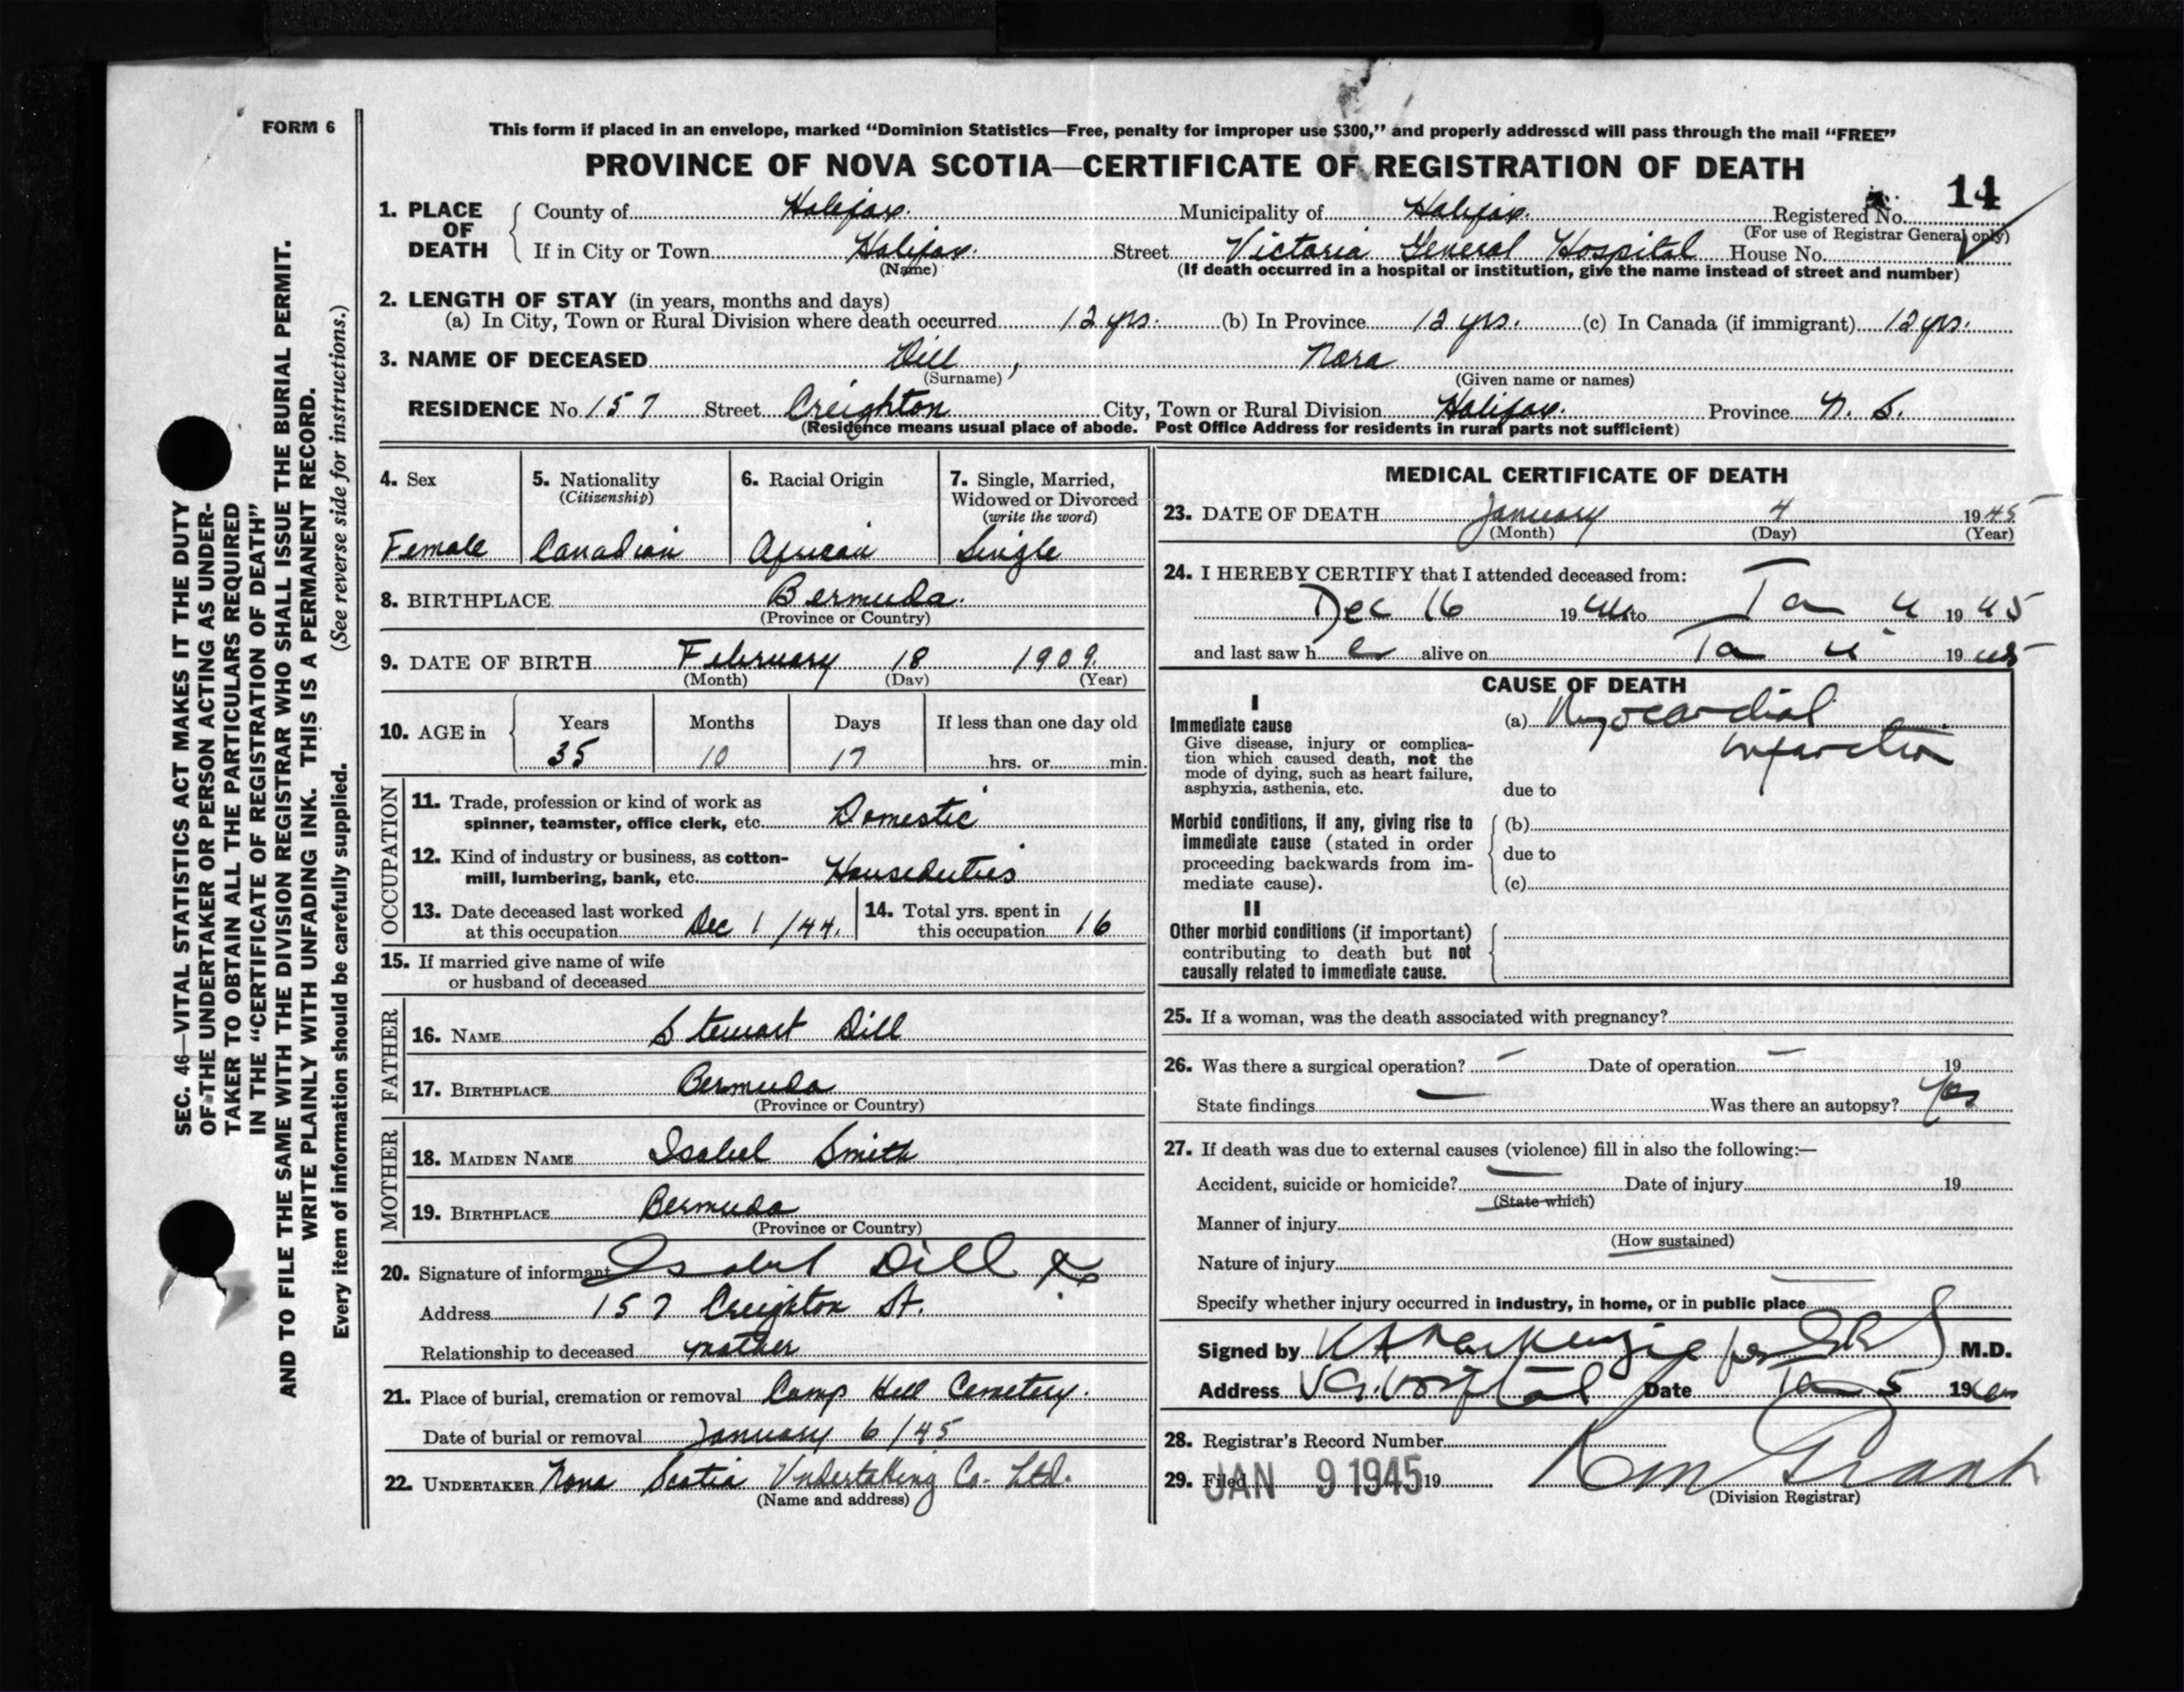 FORM 6
This form if placed in an envelope, marked “Dominion Statistics—Free, penalty for improper use $300,” and properly addressed will pass through the mail “FREE”
PROVINCE OF NOVA SCOTIA—CERTIFICATE OF REGISTRATION OF DEATH
1. PLACE OF DEATH
County of Halifax. Municipality of Halifax. Registered No. 14
(For use of Registrar General only)
If in City or Town Halifax. Street Victoria General Hospital House No.
(Name) (If death occurred in a hospital or institution, give the name instead of street and number)
2. LENGTH OF STAY (in years, months and days)
(a) In City, Town or Rural Division where death occurred 12 yrs. (b) In Province 12 yrs. (c) In Canada (if immigrant) 12 yrs.
3. NAME OF DECEASED Dill, Nora
(Surname) (Given name or names)
RESIDENCE No. 157 Street Creighton City, Town or Rural Division Halifax. Province N. S.
(Residence means usual place of abode. Post Office Address for residents in rural parts not sufficient)
4. Sex
Female
5. Nationality
(Citizenship)
Canadian
6. Racial Origin
African
7. Single, Married,
Widowed or Divorced
(write the word)
Single
8. BIRTHPLACE Bermuda.
(Province or Country)
9. DATE OF BIRTH February 18 1909.
(Month) (Day) (Year)
10. AGE in
Years Months Days If less than one day old
35 10 17 hrs. or min.
OCCUPATION
11. Trade, profession or kind of work as
spinner, teamster, office clerk, etc. Domestic
12. Kind of industry or business, as cotton-
mill, lumbering, bank, etc. Houseduties
13. Date deceased last worked
at this occupation Dec 1/44.
14. Total yrs. spent in
this occupation 16
15. If married give name of wife
or husband of deceased
FATHER
16. NAME Stewart Dill
17. BIRTHPLACE Bermuda
(Province or Country)
MOTHER
18. MAIDEN NAME Isabel Smith
19. BIRTHPLACE Bermuda
(Province or Country)
20. Signature of informant Isabel Dill
Address 157 Creighton St.
Relationship to deceased mother
21. Place of burial, cremation or removal Camp Hill Cemetery.
Date of burial or removal January 6/45
22. UNDERTAKER Nova Scotia Undertaking Co. Ltd.
(Name and address)
MEDICAL CERTIFICATE OF DEATH
23. DATE OF DEATH January 4 1945
(Month) (Day) (Year)
24. I HEREBY CERTIFY that I attended deceased from:
Dec 16 1944 to Jan 4 1945
and last saw h er alive on Jan 4 1945
CAUSE OF DEATH
I
Immediate cause
Give disease, injury or complica-
tion which caused death, not the
mode of dying, such as heart failure,
asphyxia, asthenia, etc.
(a) Myocardial
infarction
due to
Morbid conditions, if any, giving rise to
immediate cause (stated in order
proceeding backwards from im-
mediate cause).
(b)
due to
(c)
II
Other morbid conditions (if important)
contributing to death but not
causally related to immediate cause.
25. If a woman, was the death associated with pregnancy?
26. Was there a surgical operation? — Date of operation — 19
State findings — Was there an autopsy? Yes
27. If death was due to external causes (violence) fill in also the following:—
Accident, suicide or homicide? — Date of injury 19
(State which)
Manner of injury
(How sustained)
Nature of injury
Specify whether injury occurred in industry, in home, or in public place
Signed by K A MacKenzie per M.D.
Address V.G. Hospital Date Jan 5 19
28. Registrar's Record Number
29. Filed JAN 9 1945 19
(Division Registrar)
SEC. 46—VITAL STATISTICS ACT MAKES IT THE DUTY
OF THE UNDERTAKER OR PERSON ACTING AS UNDER-
TAKER TO OBTAIN ALL THE PARTICULARS REQUIRED
IN THE “CERTIFICATE OF REGISTRATION OF DEATH”
AND TO FILE THE SAME WITH THE DIVISION REGISTRAR WHO SHALL ISSUE THE BURIAL PERMIT.
WRITE PLAINLY WITH UNFADING INK. THIS IS A PERMANENT RECORD.
Every item of information should be carefully supplied. (See reverse side for instructions.)